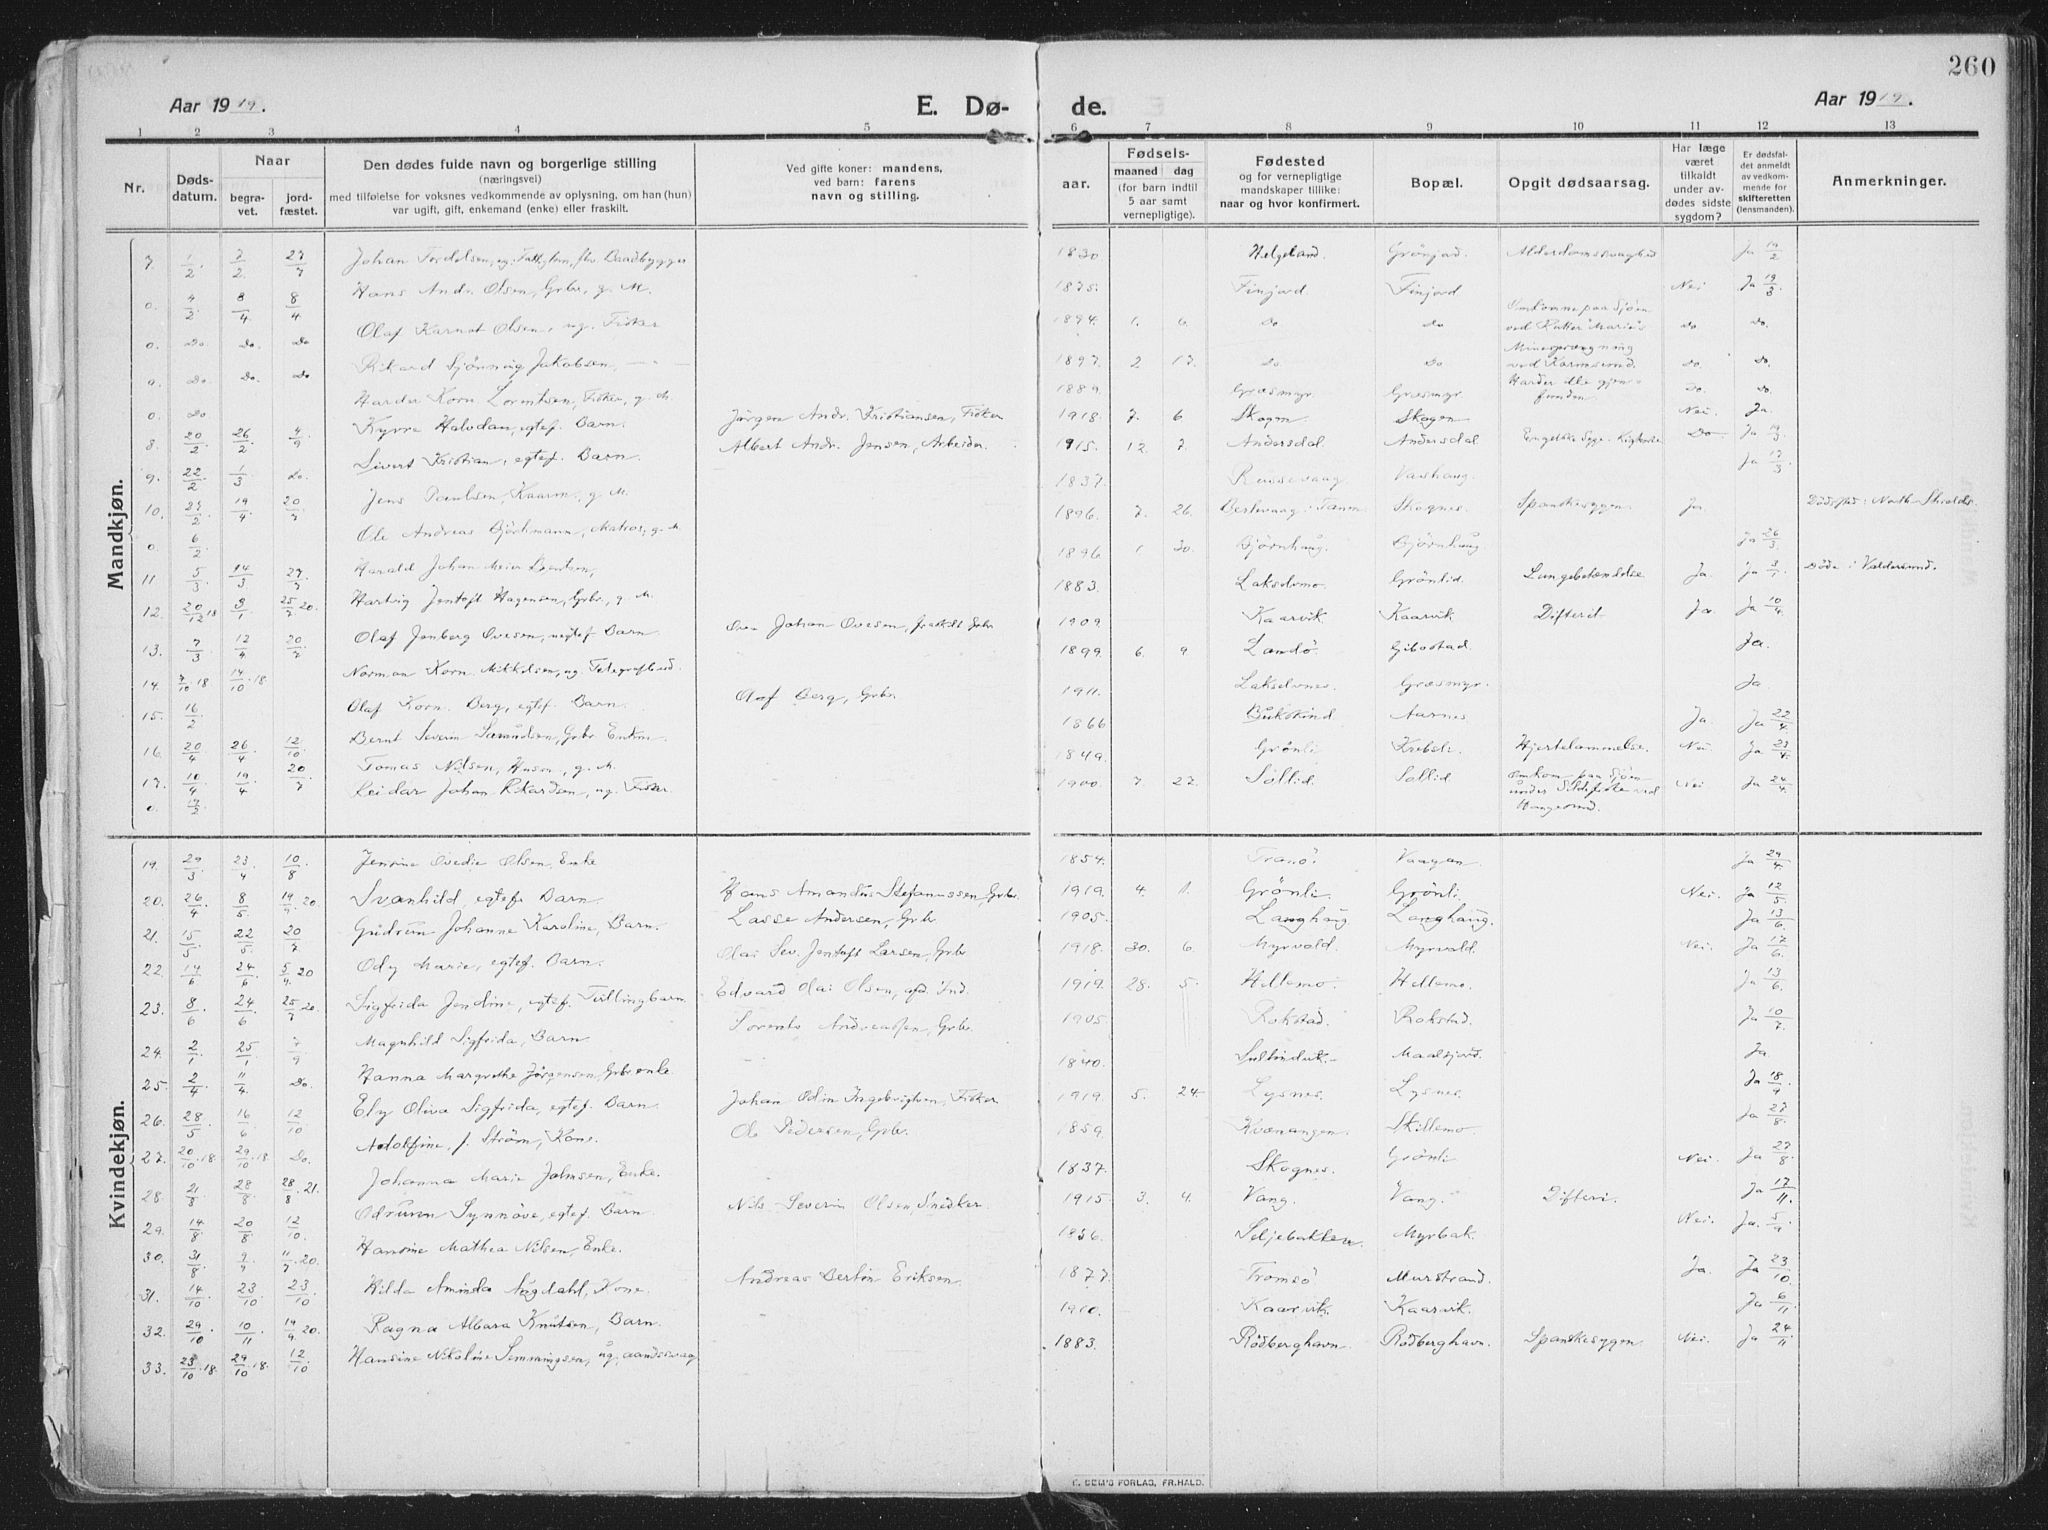 260
Aar 1919. E. Dø- de. Aar 1919.
1 2 3 4 5 6 7 8 9 10 11 12 13
Nr. Døds-datum. Naar begra-vet. jord-fæstet. Den dødes fulde navn og borgerlige stilling (næringsvei) med tilføielse for voksnes vedkommende av oplysning, om han (hun) var ugift, gift, enkemand (enke) eller fraskilt. Ved gifte koner: mandens, ved barn: farens navn og stilling. Fødsels- aar. maaned dag (for barn indtil 5 aar samt vernepligtige). Fødested og for vernepligtige mandskaper tillike: naar og hvor konfirmert. Bopæl. Opgit dødsaarsag. Har læge været tilkaldt under av-dødes sidste sygdom? Er dødsfal-det anmeldt av vedkom-mende for skifteretten (lensmanden). Anmerkninger.
Mandkjøn.
7. 1/2 27/7 Johan 1830 Helgeland Grönjord. Alderdomssvaghed Ja
0. 8/4 Hans Andr. Olsen, Grbr, g. M. 1875. Finjord. Finjord Nei Ja 19/3
0. Do. Do. Do Olaf Karnot Olsen, ug. Fisker 1894. 1. 6. Do Do ved Kutter "Marie" Do Do.
0. Do. Do. Do Rikard Sjönning Jakobsen, 1897. 2 17. Do Do Minesprængning ved Karmsund. Do. Do.
0. Do Harder Korn. Lorentsen, Fisker, g. M. 1889. Græsmyr. Græsmyr Do. Do.
8. 20/2 26/2 4/9 Kyrre Halvdan, egtef. Barn. Jörgen Andr. Kristiansen, Fisker 1918. 7. 6 Skogen Skogen Nei Ja.
9. 22/2 1/3 Do. Sivert Kristian, egtef. Barn. Albert Andr. Jensen, Arbeider 1915. 12. 7. Andersdal. Andersdal Do Ja 19/3
10. 27/2 19/4 20/7 Jens Paulsen, Kaarm., g. M. 1837. Russevaag Ja 17/3
0. 6/2 Ole Andreas Björkmann, Matros, g. M. 1896. 7. 26. Skognes. Spanskesygen. Ja. Dödssted: North Shields.
11 5/3 14/3 27/7 Harald Johan Meier 1896. 1. 30. Björnhaug. Björnhaug Ja 26/3
12. 20/12 18 3/1 25/7 20. Hartvig Jentoft Hagensen, Grbr., g. M. 1883. Lakselvmo. Grönlid. Lungebetændelse Ja. Ja 3/1 Döde i Valdersund.
13. 7/3 12/4 20/7 Olaf Jenberg Ovesen, uegtef Barn. Ove Johan Ovesen, fraskilt Grbr 1909. Kaarvik Kaarvik Difterit Ja. Ja 10/4
14. 7/10 18 14/10 18. Norman Korn. Mikkelsen, ug. Telegrafbud. 1899. 6. 9 Landö. Gibostad. Ja.
15. 16/2 Olaf Korn. Berg, egtef. Barn. Olaf Berg, Grbr. 1911. Lakselvnes. Græsmyr. Ja
16. 20/4 26/4 12/10 Bernt Severin Samuelsen, Grbr Enkm. 1866 Bukskind Aarnes Ja. Ja 22/4.
17. 10/4 19/4 20/7 Tomas Nilsen, Husm., g. M. 1849. Grönli Krebsli. Hjertelammelse. Nei Ja 23/4
0. 17/2 Reidar Johan Rikardsen, ug. Fisker. 1900. 7. 27. Sollid. Sollid Omkom paa Sjöen under Sildefiske ved Haugesund. Nei Ja 24/4
Kvindekjøn.
19. 29/3 23/4 10/8 Jensine Ovedie Olsen, Enke 1854. Tranö. Vangan. Ja 29/4
20. 26/4 8/5 19/9. 20. Svanhild, egtef Barn. Hans Amandus Stefanussen, Grbr. 1919. 4. 1. Grönli Grönli Nei. Ja 12/5
21. 15/5 22/5 20/7 Gudrun Johanne Karoline, Barn. Lasse Andersen, Grbr. 1905. Langhaug Langhaug. Ja 13/6
22. 14/6 24/6 5/9 20 Ody Marie, egtef. Barn. Olai Sev. Jentoft Larsen, Grbr. 1918. 30. 6. Myrvold. Myrvold. Nei Ja 17/6
23. 8/6 24/6 25/7 20. Sigfrida Jendine, egtef. Tvillingbarn. Edvard Olai Olsen, afd. Ind. 1919. 28. 5. Hillemo. Hillemo. Ja 13/6
24. 2/1 25/1 7/9 Magnhild Sigfrida, Barn Lorents Andreassen, Grbr. 1905. Rokstad. Rokstad. Ja 10/7
25. 2/4 11/4 Do. Hanna Margrethe Jörgensen, Grbrenke. 1840. Maalsjord. Ja
26. 28/5 16/6 12/10 Ely Oliva Sigfrida, egtef. Barn. Johan Odin Ingebrigtsen, Fisker 1919. 5. 24. Lysnes. Lysnes. Ja 18/9
27. 20/10 18. 29/10 18. Do. Adolfine, f. Ström, Kone. Ole Pedersen, Grbr. 1859. Kvænangen. Skillemo. Ja 27/8
28. 21/8 28/8 28/8 21. Johanna Marie Johnsen, Enke. 1837. Skognes. Grönli Nei. Ja 27/8
29. 14/8 20/8 12/10. Odrunn Synnöve, egtef. Barn. Nils Severin Olsen, Snedker. 1915. 3. 4. Vang. Vang. Difteri. Ja 17/11.
30. 31/8 9/9 11/7. 20. Hansine Mathea Nilsen, Enke. 1856. Seljebakken. Myrbak. Nei. Ja. 5/9
31. 14/10 23/10 23/10 Hilda Aminda Aagdahl, Kone. Andreas Bertin Eriksen. 1877. Tromsö Murstrand. Ja. Ja 23/10.
32. 29/10 10/11 19/9. 20. Ragna Albara Knutsen, Barn. 1910. Kaarvik. Kaarvik. Ja 6/11
33. 23/10 18. 29/10 18. 12/10. Hansine Nikoline Semmingsen, ug, aandssvag 1883. Rödberghavn Rödberghavn. Spanskesygen. Nei. Ja 24/11
F. BEM'S FORLAG, FR.HALD.